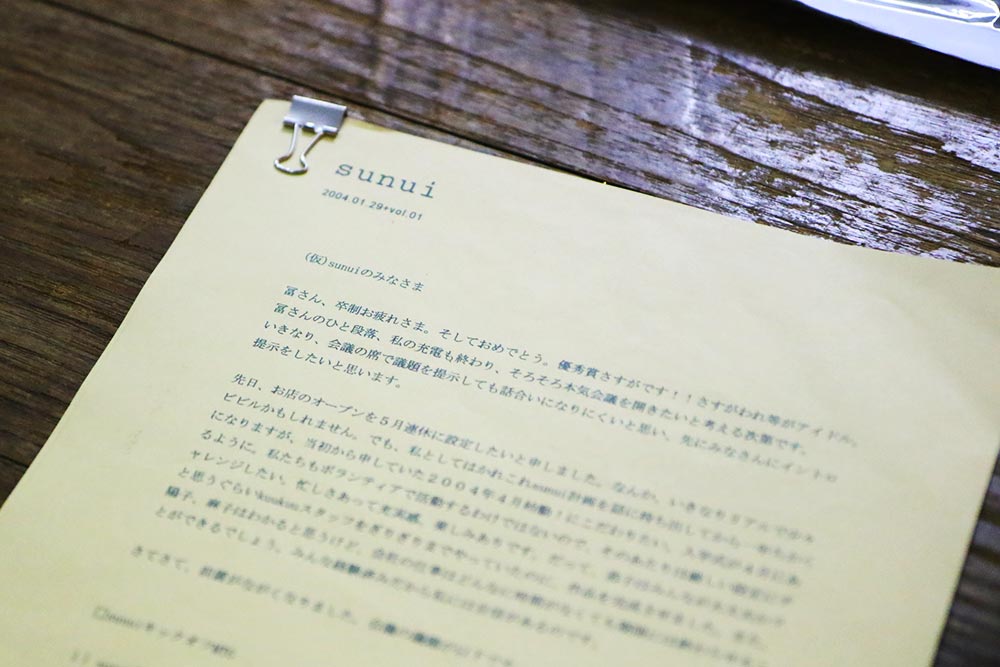 sunui
2004.01.29+vol.01
(仮)sunuiのみなさま
冨さん、卒制お疲れさま。そしておめでとう。優秀賞さすがです！！さすがわれ等がアイドル。
冨さんのひと段落、私の充電も終わり、そろそろ本気会議を開きたいと考える次第です。
いきなり、会議の席で議題を提示しても話合いになりにくいと思い、先にみなさんにイントロ
提示をしたいと思います。
先日、お店のオープンを５月連休に設定したいと申しました。なんか、いきなりリアルで
ビビルかもしれません。でも、私としてはかれこれsunui計画を話に持ち出してから一年
になりますが、当初から申していた２００４年４月始動！にこだわりたい。入学式が４月にあ
るように。私たちもボランティアで活動するわけではないので、そのあたりは厳しい
ャレンジしたい。忙しさあって充実感、楽しみありです。だって、
と思うぐらい スタッフをぎりぎりまでやっていたのに、作品を完成させました。また、
陽子、麻子はわかると思うけど、会社の仕事はどんなに時間がなくても
とができるでしょう。みんな
さてさて、前置がながくなりました。